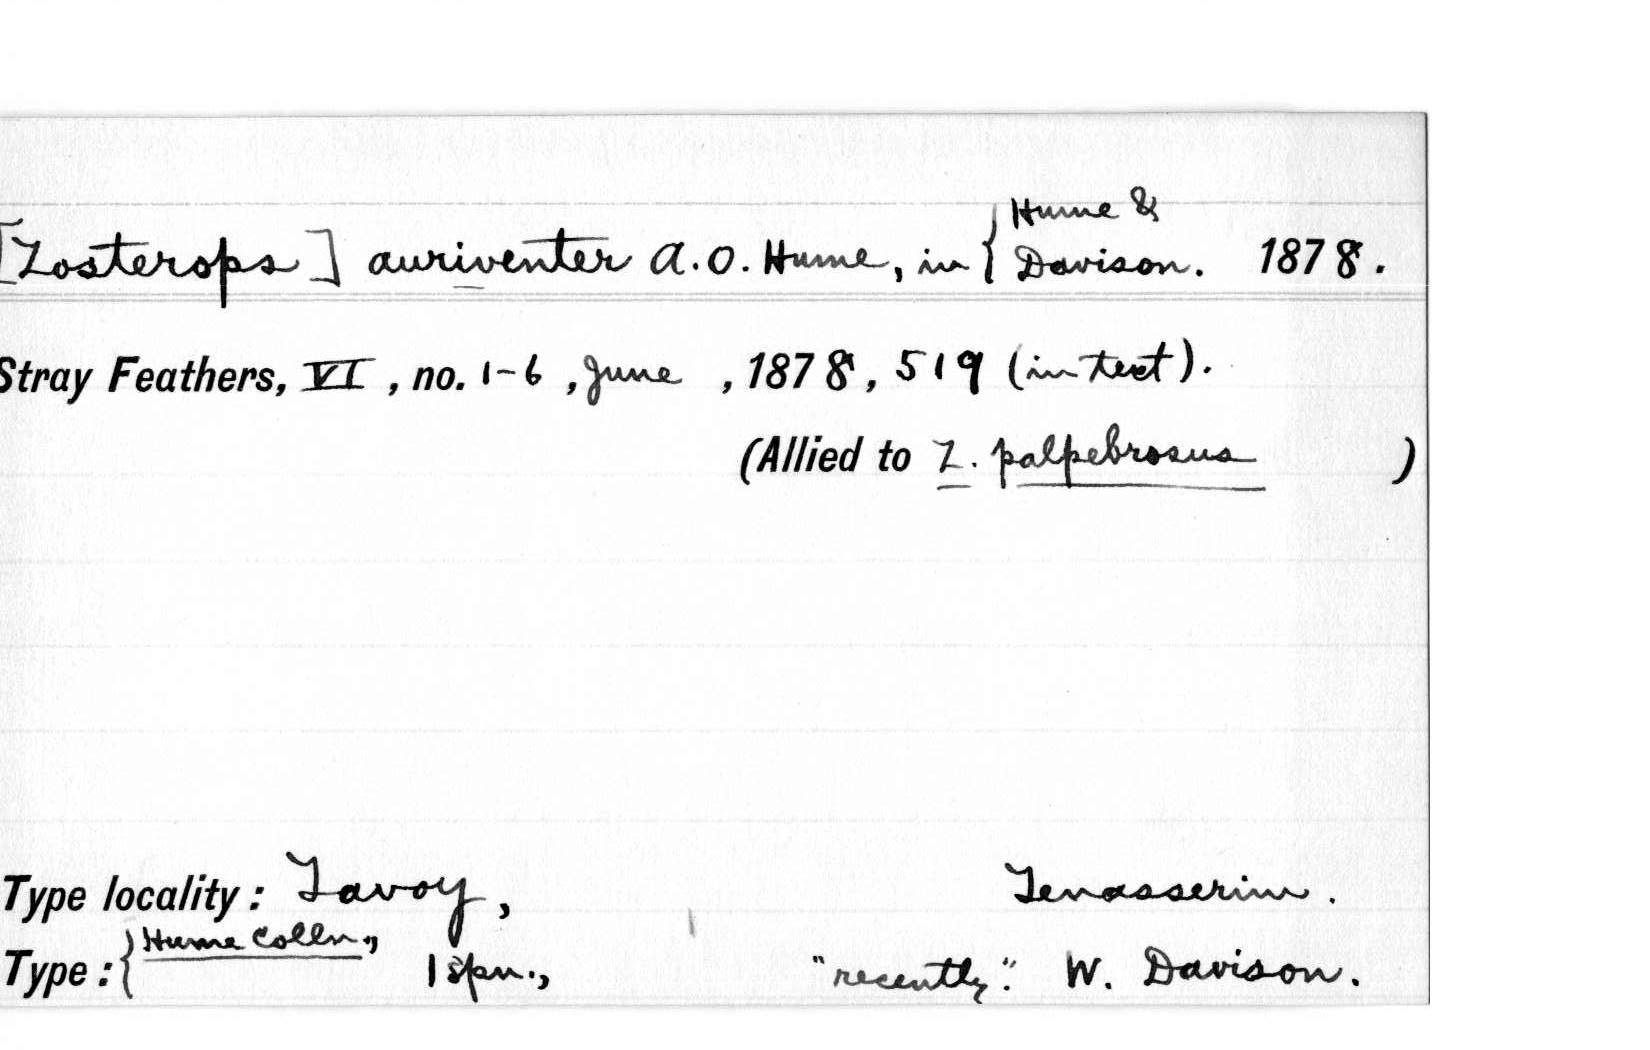 [Zosterops] auriventer A.O. Hume, in { Hume & Davison. 1878.
Stray Feathers, VI, no. 1-6, June, 1878, 519 (in text).
(Allied to Z. palpebrosus )
Type locality: Tavoy, Tenasserim.
Type: { Hume Colln., 1 spn., "recently." W. Davison.